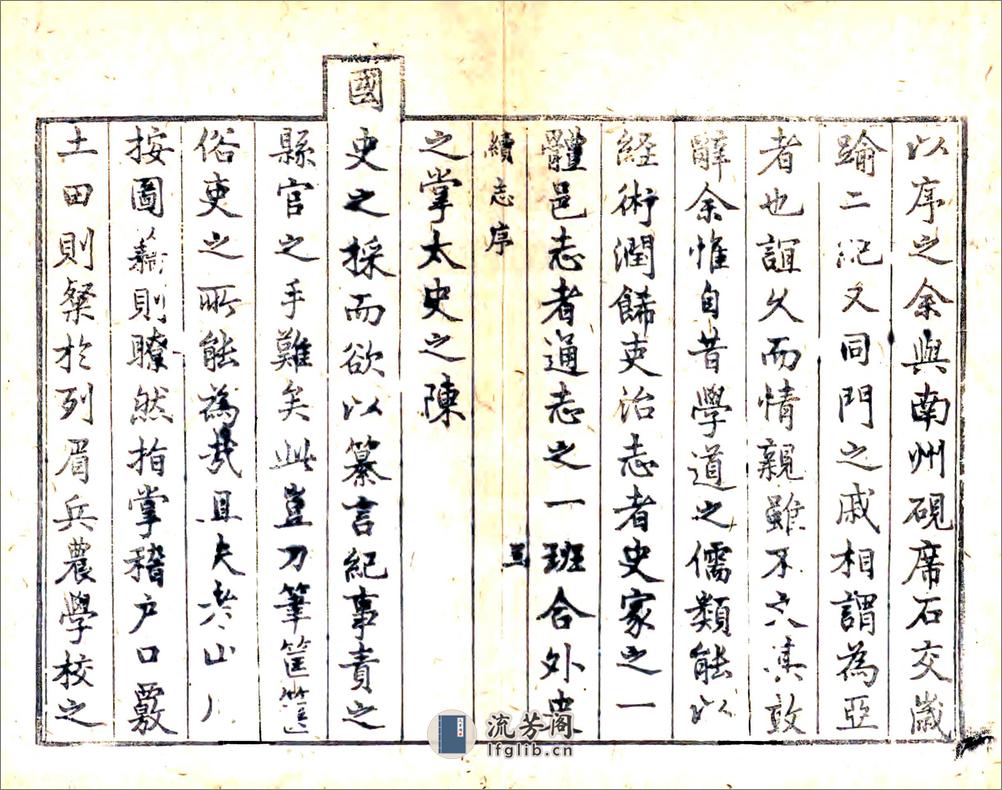 以序之余與南州硯席石交歲
踰二紀又同門之戚相謂為亞
者也誼久而情親雖不文其敢
辭余惟自昔學道之儒類能以
経術潤餙吏治志者史家之一
體邑志者通志之一班合外史
續志序
之掌太史之陳
國史之採而欲以纂言紀事責之
縣官之手難矣此豈刀筆筐篋
俗吏之所能為哉且夫考山川
按圖籍則瞭然指掌稽户口覈
土田則粲於列眉兵農學校之
流芳阁
lfglib.cn